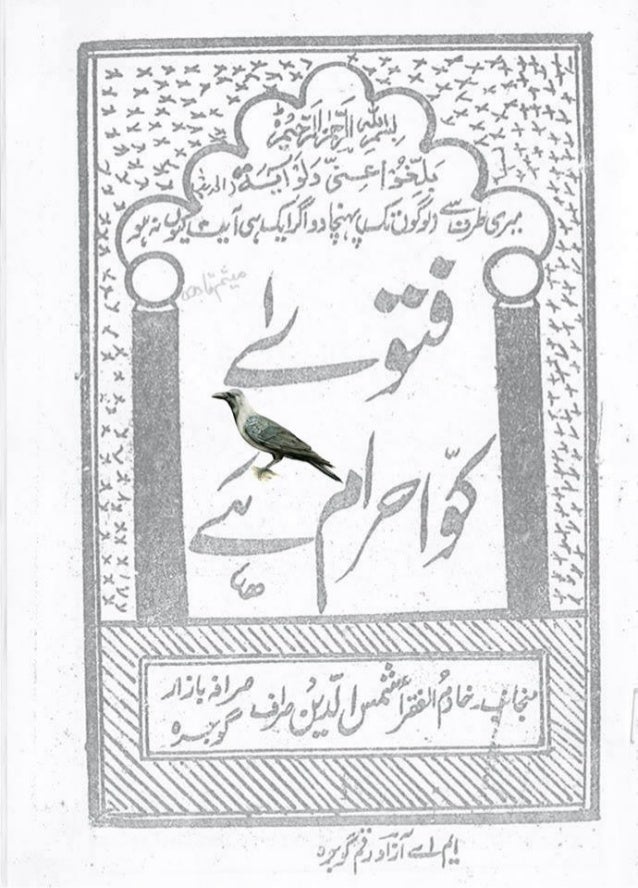 بسم الله الرحمن الرحیم
بَلِّغُوْا عَنِّیْ وَلَوْ اٰیَةً (الحدیث)
میری طرف سے لوگوں تک پہنچا دو اگر ایک ہی آیت کیوں نہ ہو
فتوٰے
کوّا حرام ہے
منجانب۔ خادمُ الفقرأ شمس الدّین صراف صرافہ بازار
گوجرہ
ایم اے آزاد رقم گوجرہ